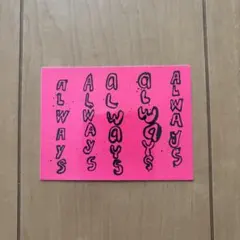 ALWAYS
ALWAYS
ALWAYS
ALWAYS
ALWAYS